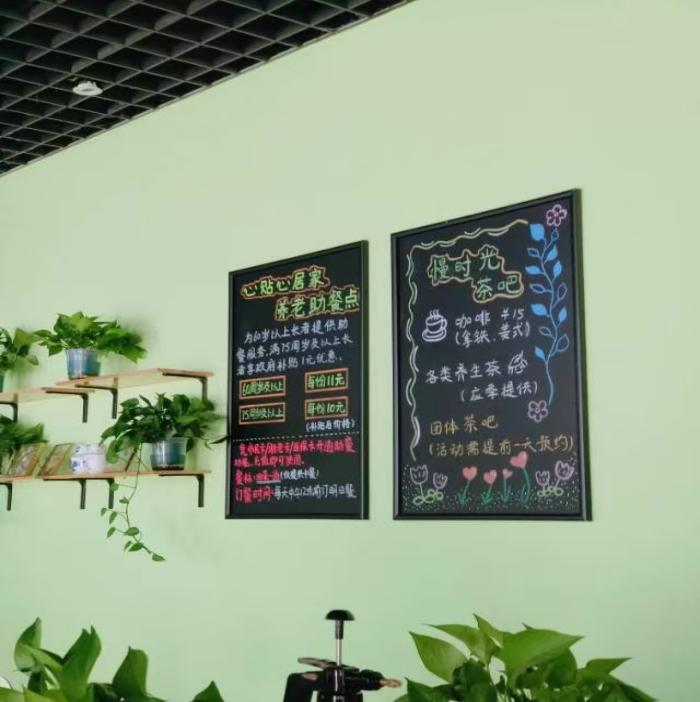 心贴心居家
养老助餐点
为60岁以上长者提供助
餐服务,满75周岁及以上长
者享政府补贴1元优惠。
60周岁及以上 每份11元
75周岁及以上 每份10元
(补贴后价格)
凭市民卡/助老卡/医保卡开通助餐
功能,充值即可使用。
餐标:
订餐时间:每天中午12点前订明日餐
慢时光
茶吧
咖啡 ¥15
(拿铁、美式)
各类养生茶
(应季提供)
团体茶吧
(活动需提前一天预约)